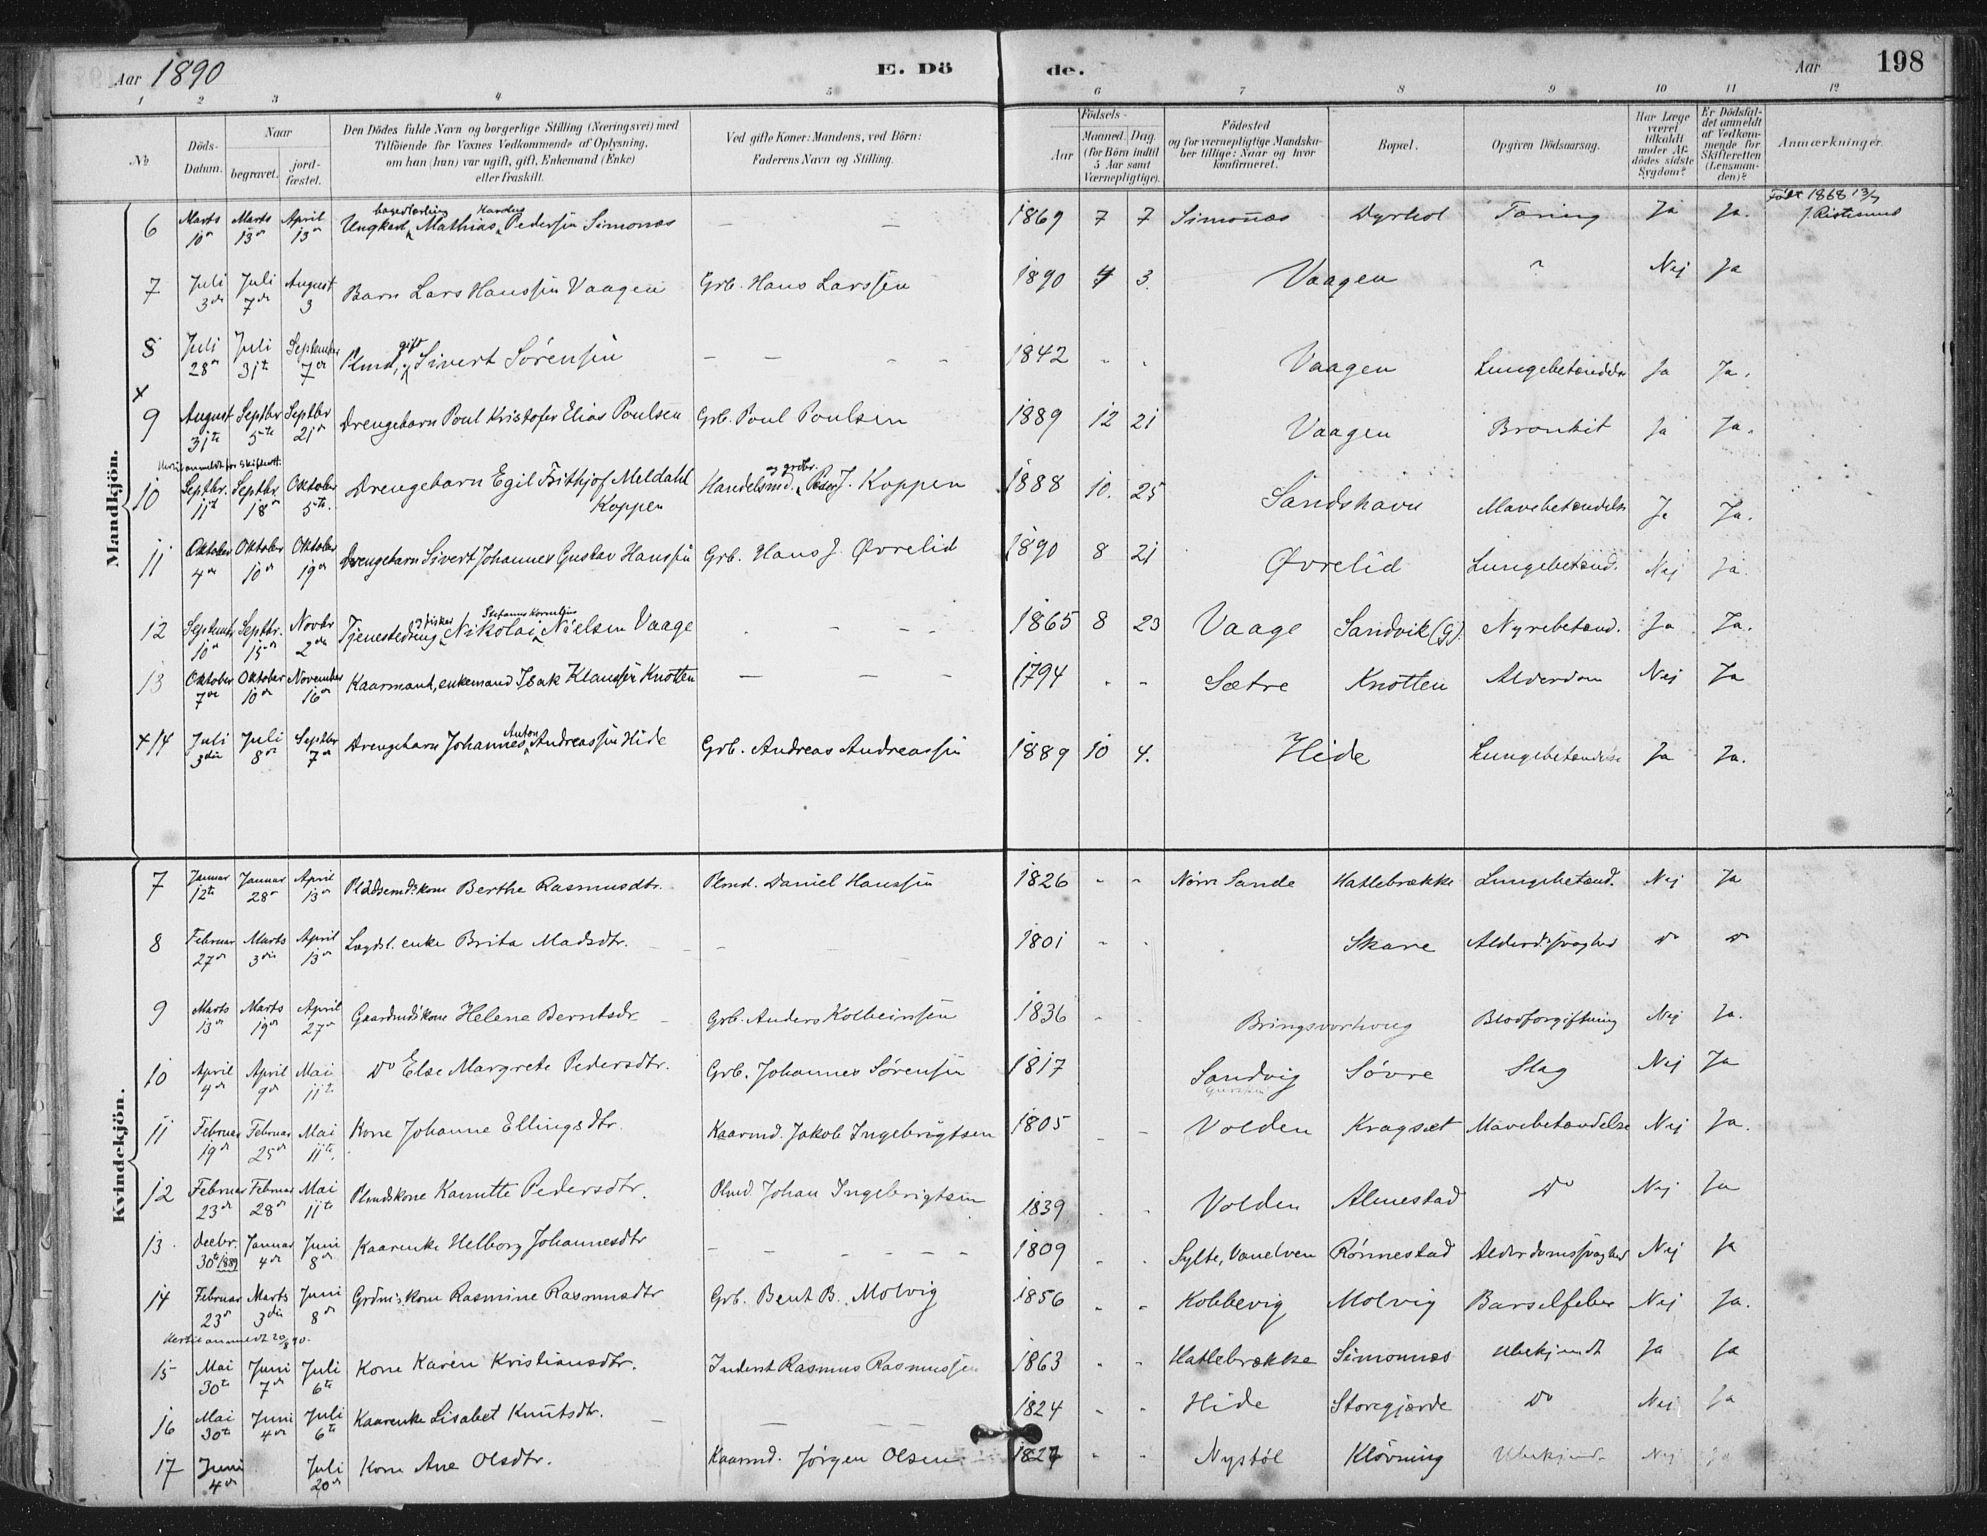 Aar 1890 E. Dö de. Aar 198
1 2 3 4 5 6 7 8 9 10 11 12
No Döds-Datum. Naar begravet. jord-fæstet. Den Dödes fulde Navn og borgerlige Stilling (Næringsvei) med Tilföiende for Voxnes Vedkommende af Oplysning, om han (hun) var ugift, gift, Enkemand (Enke) eller fraskilt. Ved gifte Koner: Mandens, ved Börn: Faderens Navn og Stilling. Födsels- Aar Maaned. Dag. (for Börn indtil 5 Aar samt Værnepligtige). Födested og for værnepligtige Mandska-ber tillige: Naar og hvor konfirmeret. Bopæl. Opgiven Dödsaarsag. Har Læge været tilkaldt under Af-dödes sidste Sygdom? Er Dödsfal-det anmeldt af Vedkom-mende for Skifteretten (Lensman-den)? Anmærkninger.
Mandkjön.
6 Marts 10de Marts 13de April 13de Ungkarl Mathias Pedersen Simonæs — — 1869 7 7 Simonæs Dyrhol Tæring Ja Ja. Født 1868 13/7
7 Juli 3de Juli 7de August 3 Barn Lars Hanssen Vaagen Grb. Hans Larssen 1890 4 3. Vaagen ? Nej Ja
8 Juli 28de Juli 31te September 7de Plmd, gift Sivert Sørensen — — 1842 - - Vaagen Lungebetændelse Ja Ja.
+ 9 August 31te Septbr 5te Septbr 21de Drengebarn Poul Kristofer Elias Poulsen Grb. Poul Poulsen 1889 12 21 Vaagen Bronkit Ja Ja.
10 Septbr. 11te Septbr. 18de Oktober 5te. Drengebarn Egil Frithjof Meldahl Koppen Handelsmd. og grbr. Peder J. Koppen 1888 10. 25 Sandshavn Mavebetændelse Ja Ja.
11 Oktober 4de Oktober 10de Oktober 19de Drengebarn Sivert Johannes Gustav Hanssen Grb. Hans J. Øvrelid 1890 8 21 Øvrelid Lungebetænd. Nej Ja.
12 Septembr 10de Septbr. 15de Novbr 2de Tjenestedreng og fisker Nikolai Stefanus Kornelius Nielsen Vaage - - 1865 8 23 Vaage Sandvik (G). Nyrebetænd. Ja Ja.
13 Oktober 7de Oktober 10de November 16de Kaarmand, enkemand Isak Klaussen Knotten — — 1794 - - Sætre Knotten Alderdom Nej Ja
+14 Juli 3die Juli 8de Septbr 7de Drengebarn Johannes Anton Andreassen Hide Grb. Andreas Andreassen 1889 10 4. Hide Lungebetændelse Ja Ja.
Kvindekjön.
7 Januar 12te Januar 28de April 13de Pladsemds kone Berthe Rasmusdtr. Plmd. Daniel Hanssen 1826 - - Nørre Sande Hatlebrække Lungebetænd. Nej Ja
8 Februar 27de Marts 3die April 13de Lægdsl. enke Brita Madsdtr. - 1801 - - Skare Alderd.svaghed Do Do
9 Marts 13de Marts 19de April 27de Gaardmdskone Helene Berntsdr Grb. Anders Kolbeinsen 1836 - - Bringsvorhoug Blodforgiftning Nej Ja.
10 April 4de April 9de Mai 11te Do Else Margrete Pedersdtr. Grb. Johannes Sørensen 1817 Sandvig Gurskøi Søvre Slag Nej Ja
11 Februar 19de Februar 25de Mai 11te. Kone Johanne Ellingsdtr. Kaarmd. Jakob Ingebrigtsen 1805 - - Volden Kragsæt Mavebetændelse Nej Ja.
12 Februar 23de Februar 28de Mai 11te Plmdskone Kanutte Pedersdtr. Plmd. Johan Ingebrigtsen 1839 - - Volden Almestad Do Nej Ja
13 Decbr. 30te 1889 Januar 4de Juni 8de Kaarenke Helborg Johannesdtr — — 1809 - - Sylte, Vanelven Rønnestad Alderdomssvaghed Nej Ja
14 Februar 23de Marts 3die Juni 8de Grdms kone Rasmine Rasmusdtr Grb. Bent B. Molvig 1856 - - Kobbevig Molvig Barselfeber Nej Ja.
15 Mai 30te Juni 7de Juli 6te Kone Karen Kristiansdtr. Inderst Rasmus Rasmussen 1863 - - Hatlebrække Simonnæs Ubekjendt Ja Ja
16 Mai 30te Juni 4de Juli 6te Kaarenke Lisabet Knutsdtr. — 1824 - - Hide Storegjærde Do Nej Ja
17 Juni 4de Juli 20de Kone Ane Olsdtr. Kaarmd. Jørgen Olsen 1824 - - Nystøl Kløvning Ubekjendt Nej Ja